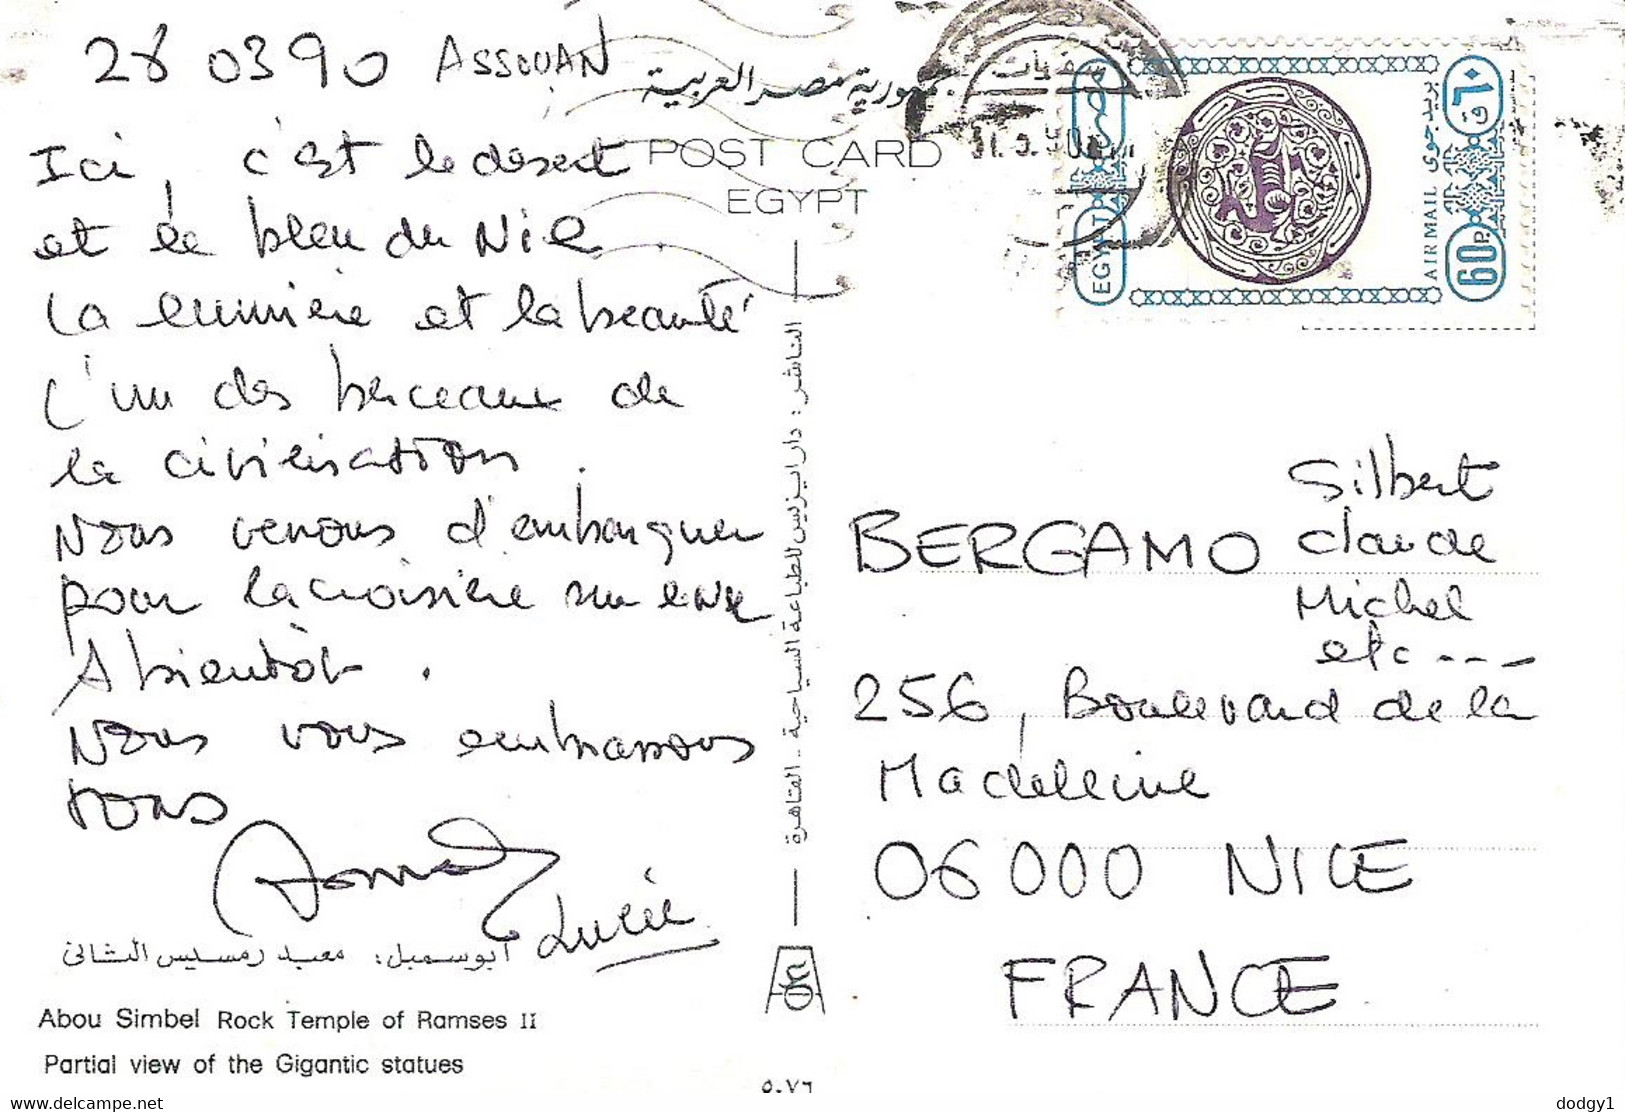 28 03 90 ASSOUAN
Ici, c'est le desert
et le bleu du Nil
La lumière et la beauté
L'un des berceaux de
la civilisation.
Nous venons d'embarquer
pour la croisière sur
A bientôt.
Nous vous embrassons
tous
Lucie
أبو سمبل: معبد رمسيس الثانى
Abou Simbel Rock Temple of Ramses II
Partial view of the Gigantic statues
جمهورية مصر العربية
POST CARD
EGYPT
الناشر: دار ايزيس للطباعة السياحية - القاهرة
٥٠٧٦
مصر
EGYPT
بريد جوى
AIR MAIL
٦٠ ق
60 P
BERGAMO
Gilbert
claude
Michel
etc---
256, Boulevard de la
Madeleine
06000 NICE
FRANCE
www.delcampe.net
dodgy1